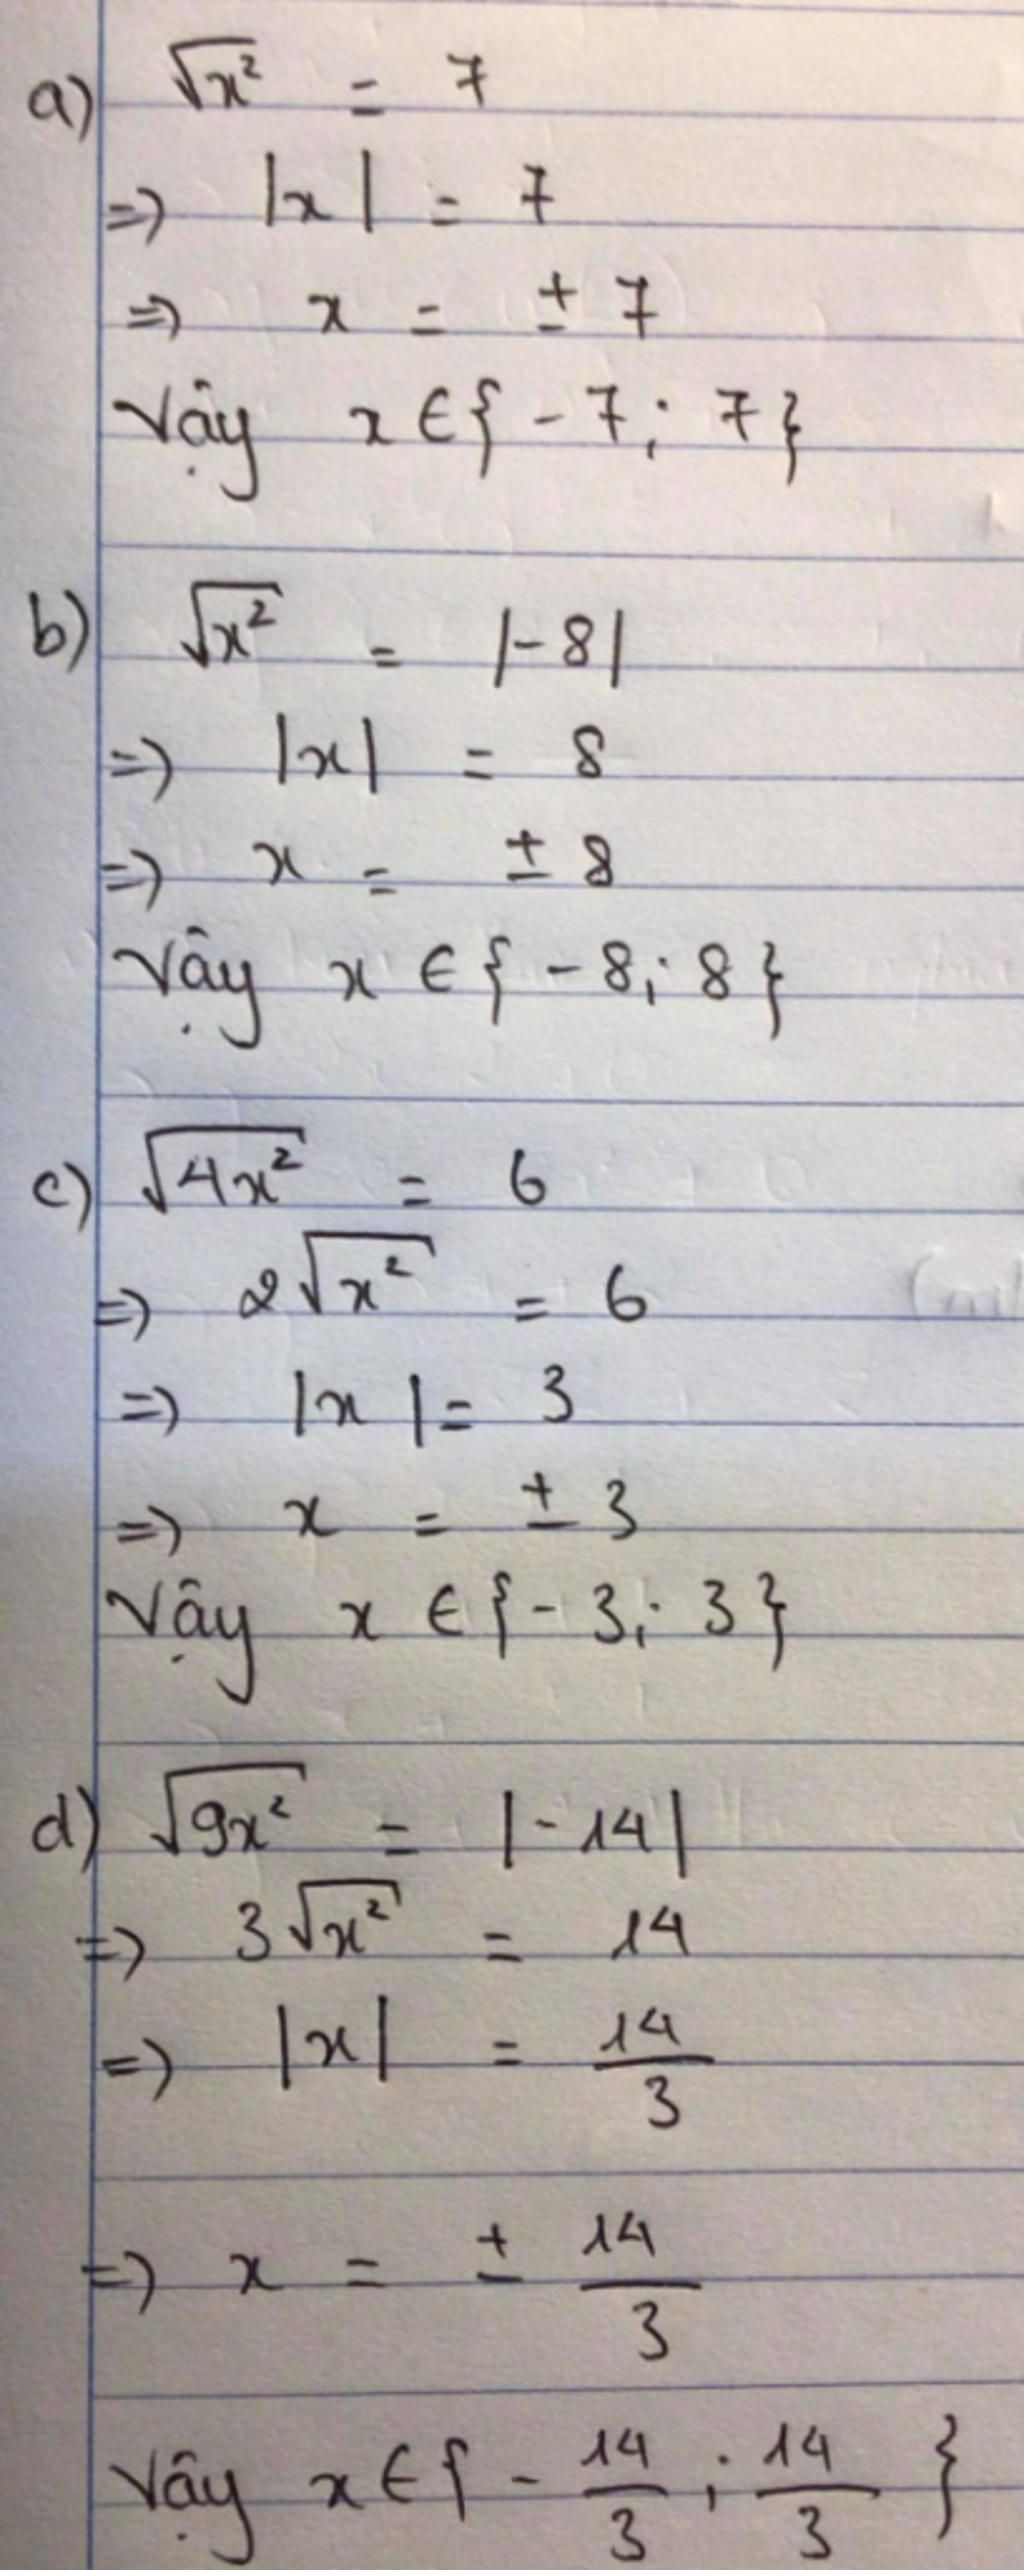 a) √x² = 7
=> |x| = 7
=> x = ± 7
Vậy x ∈ { - 7 ; 7 }
b) √x² = |-8|
=> |x| = 8
=> x = ± 8
Vậy x ∈ { - 8 ; 8 }
c) √4x² = 6
=> 2√x² = 6
=> |x| = 3
=> x = ± 3
Vậy x ∈ { - 3 ; 3 }
d) √9x² = |-14|
=> 3√x² = 14
=> |x| = 14/3
=> x = ± 14/3
Vậy x ∈ { - 14/3 ; 14/3 }